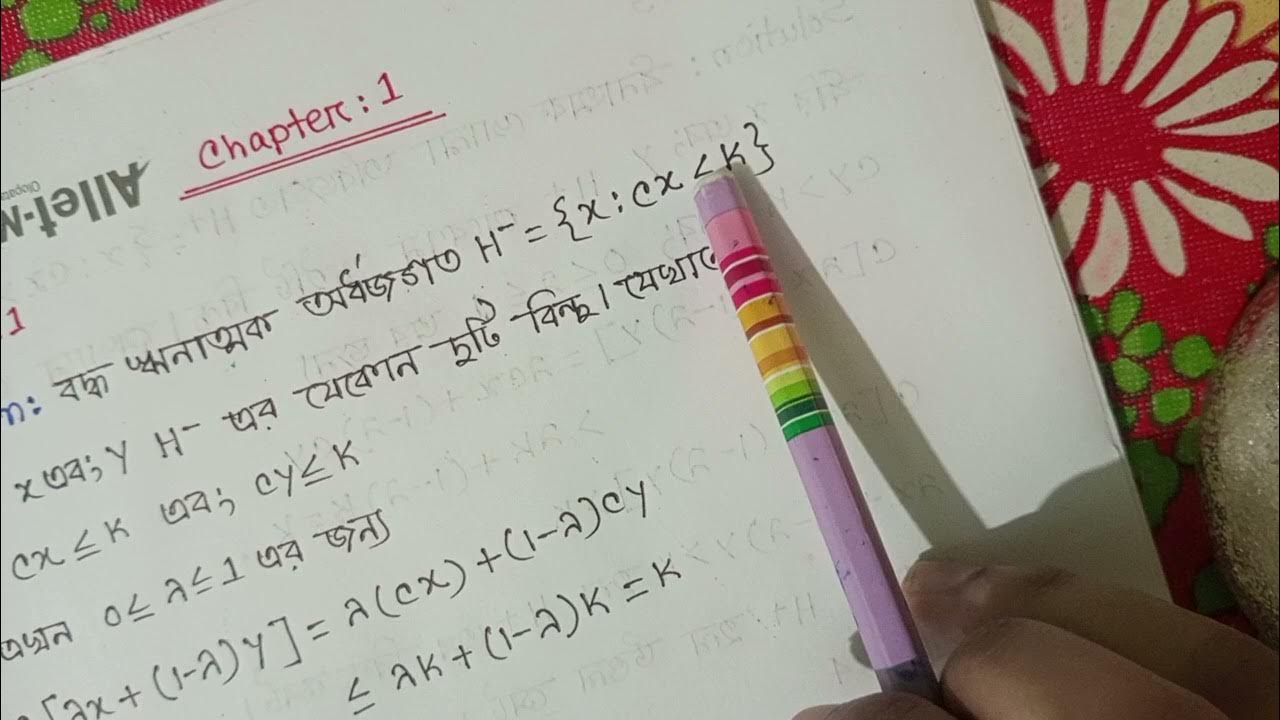 Chapter: 1
Allet-M
1
n: বদ্ধ ঋনাত্মক অর্ধজগত H⁻ = {x : cx < K}
x এবং Y H⁻ এর যেকোন দুটি বিন্দু। যেখানে
cx ≤ K এবং cy ≤ K
এখন 0 ≤ λ ≤ 1 এর জন্য
[λx + (1-λ)Y] = λ(cx) + (1-λ)cy
≤ λK + (1-λ)K = K